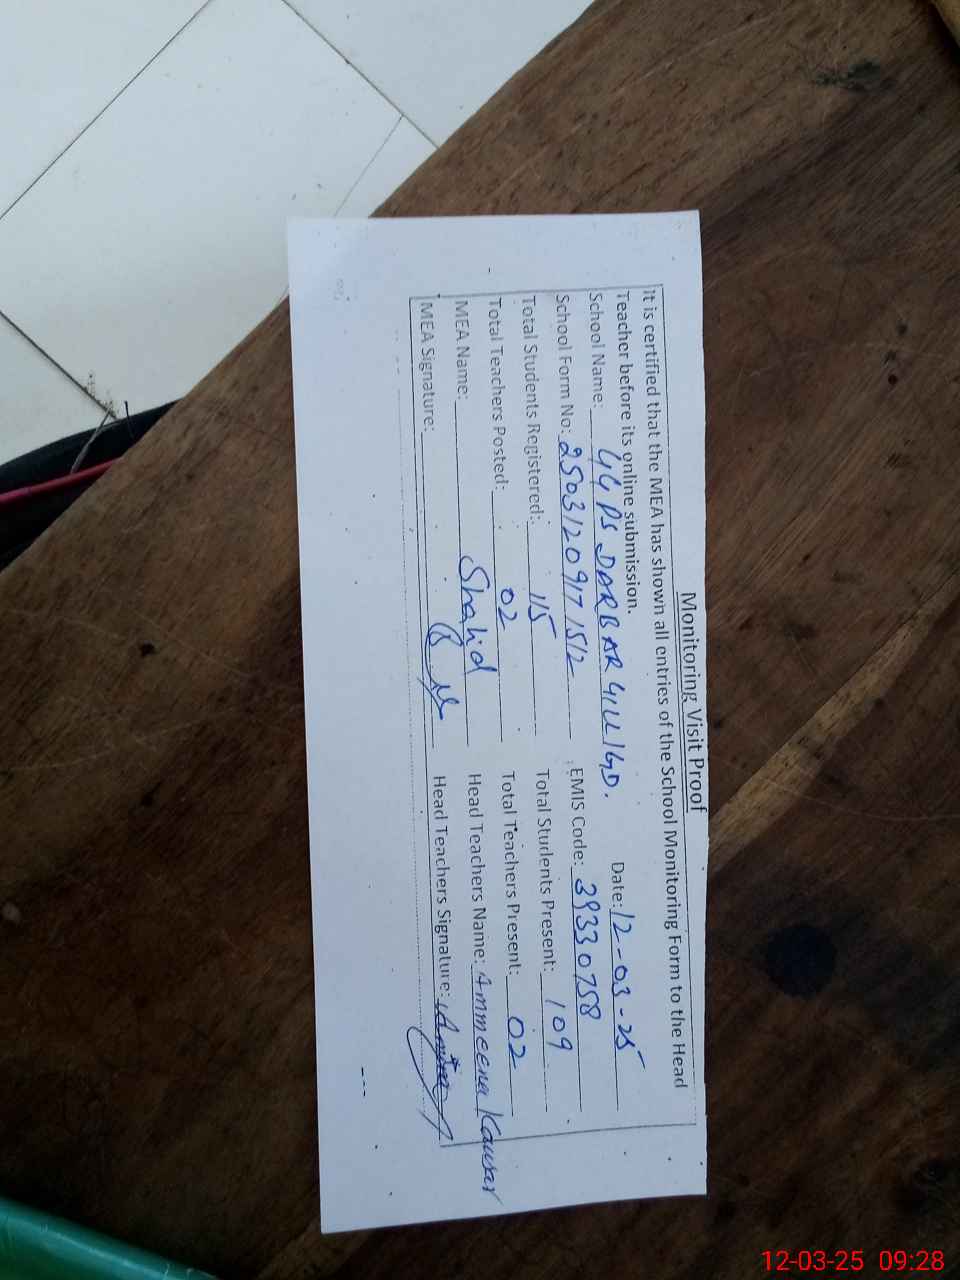 Monitoring Visit Proof
It is certified that the MEA has shown all entries of the School Monitoring Form to the Head
Teacher before its online submission.
Date: 12-03-25
School Name: GGPS DARBAR GILLIGD.
School Form No: 25031209171512 EMIS Code: 39330758
Total Students Registered: 115 Total Students Present: 109
Total Teachers Posted: 02 Total Teachers Present: 02
MEA Name: Shahid Head Teachers Name: Ammeena Kawsar
MEA Signature: Head Teachers Signature:
12-03-25 09:28